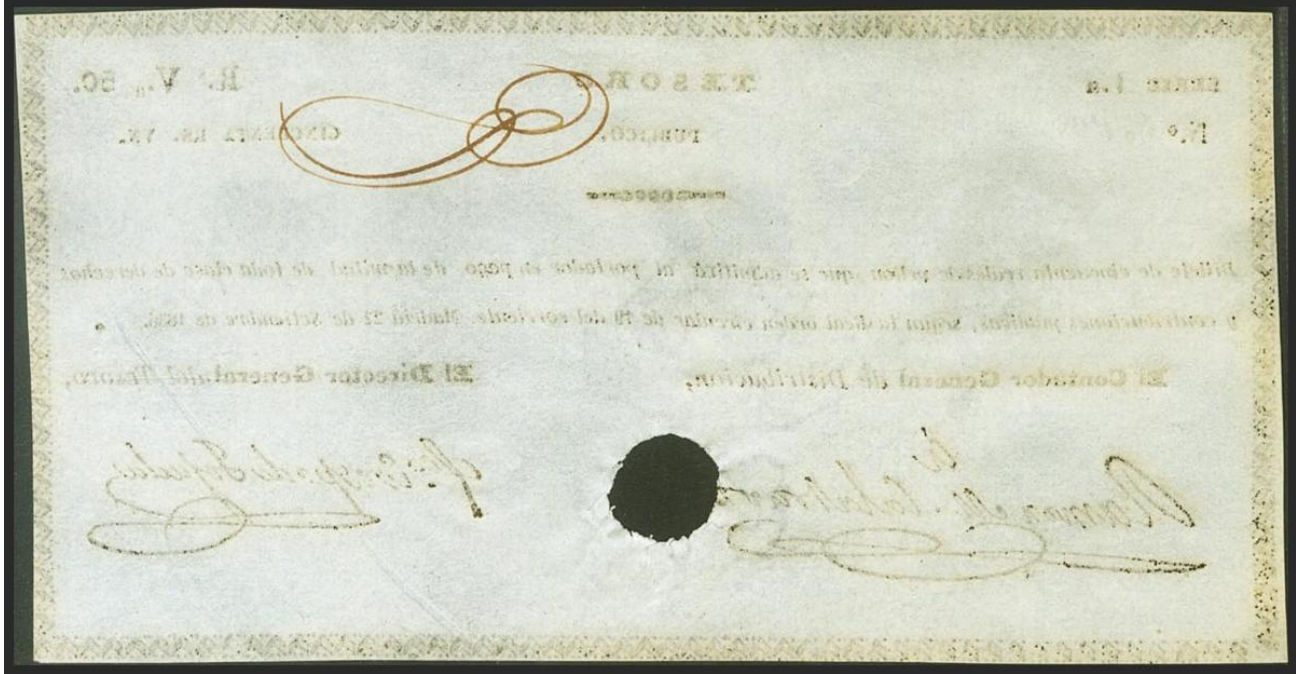 SERIE 1.a TESORO R.s V.n 50.
N.o PUBLICO. CINCUENTA RS. VN.
Billete de cincuenta reales de vellon que se admitirá al portador en pago de la mitad de toda clase de derechos
y contribuciones públicas, segun la Real orden circular de 19 del corriente. Madrid 22 de Setiembre de
El Contador General de Distribucion, El Director General del Tesoro,
Ramon